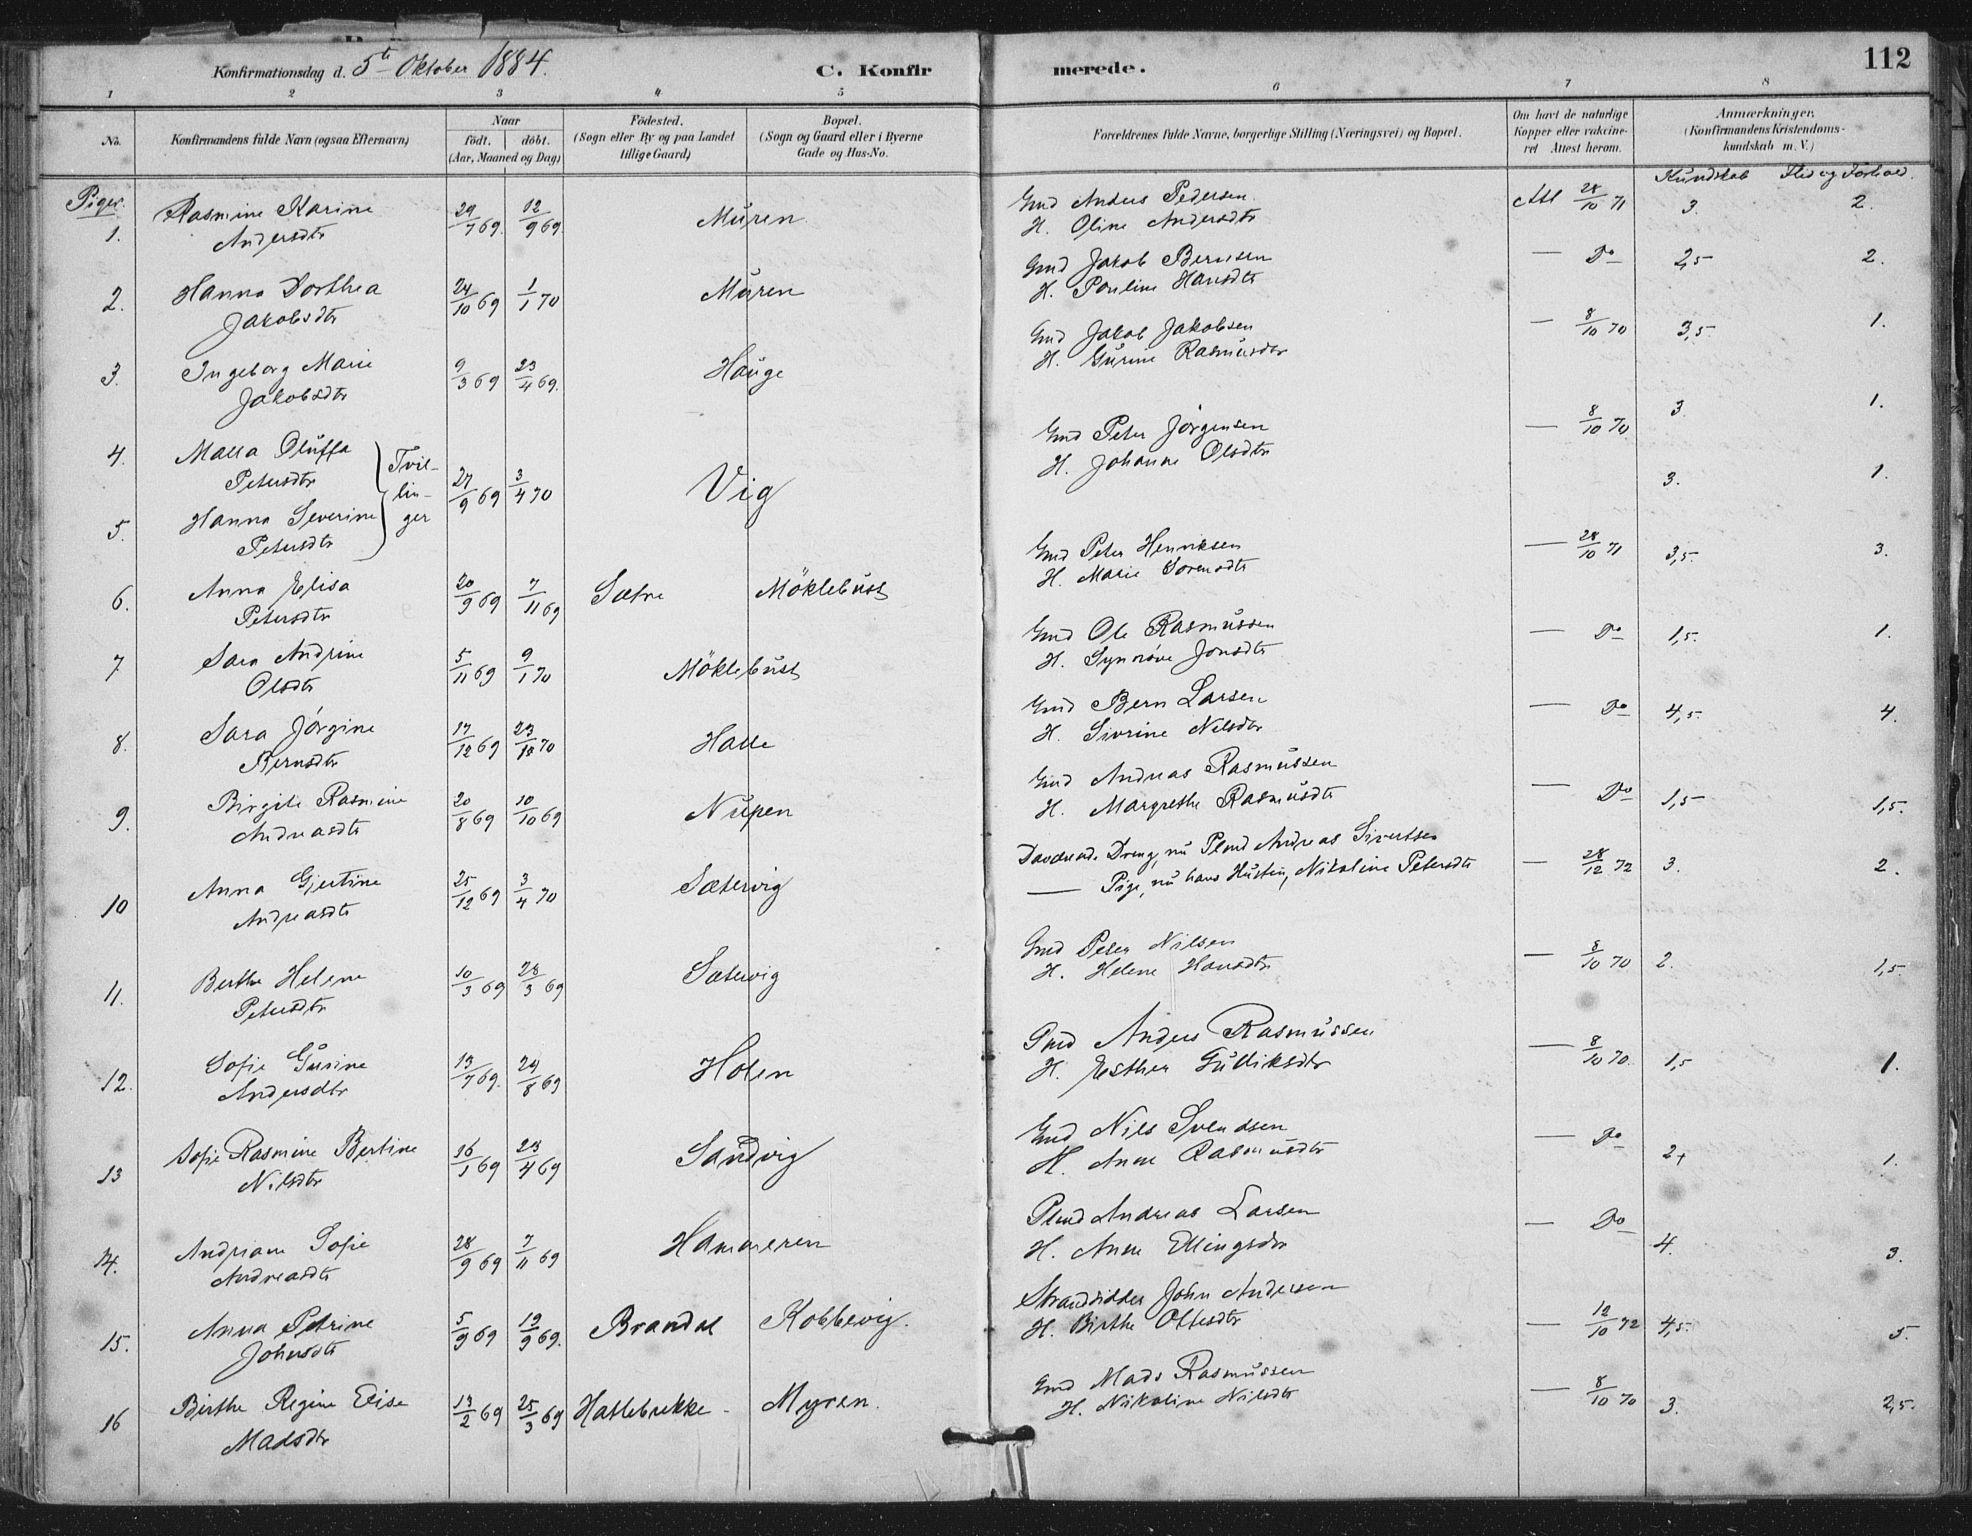 Konfirmationsdag d. 5te Oktober 1884. C. Konfirmerede. 112
1 2 3 4 5 6 7 8
No. Konfirmandens fulde Navn (ogsaa Efternavn) Naar født. døbt. (Aar, Maaned og Dag) Födested. (Sogn eller By og paa Landet tillige Gaard) Bopæl. (Sogn og Gaard eller i Byerne Gade og Hus-No. Forældrenes fulde Navne, borgerlige Stilling (Næringsvei) og Bopæl. Om havt de naturlige Kopper eller vakcineret Attest herom. Anmærkninger. (Konfirmandens Kristendomskundskab m. V.)
Kundskab Flid og Forhold.
Piger.
1. Rasmine Karine Andersdtr 29/7 69. 12/9 69. Muren Gmd Anders Pedersen Att 28/10 71 3. 2.
H. Oline Andersdtr
2. Hanna Dorthea Jakobsdtr 24/10 69 1/1 70 Muren Gmd Jakob Berntsen — Do 2,5 2.
H. Pouline Hansdtr
3. Ingeborg Marie Jakobsdtr 9/3 69 23/4 69. Hauge Gmd Jakob Jakobsen — 8/10 70 3,5 1.
H. Gurine Rasmusdtr
4. Malla Oluffa Petersdtr Tvillinger 27/9 69 3/4 70 Vig Gmd Peter Jörgensen — 8/10 70 3. 1.
H. Johanne Olsdtr
5. Hanna Severine Petersdtr 3. 1.
6. Anna Elisa Petersdtr 20/9 69 7/11 69 Sætre Möklebust Gmd Peter Henriksen — 28/10 71 3,5. 3.
H. Marie Sorensdtr
7 Sara Andrine Olsdtr 5/11 69 9/1 70 Möklebust Gmd Ole Rasmussen — Do 1,5. 1.
H. Synnöve Jonsdtr
8. Sara Jörgine Berntsdtr 17/12 69 23/10 70 Halle Gmd Bern Larsen — Do 4,5. 4.
H. Sivrine Nilsdtr
9. Birgite Rasmine Andreasdtr 20/8 69 10/10 69 Nupen Gmd Andreas Rasmussen — Do 1,5 1,5.
H. Margrethe Rasmusdtr
10 Anna Gjertine Andreasdtr 25/12 69 3/4 70 Sætervig Daværende Dreng, nu Plmd Andreas Sivertsen — 28/12 72 3. 2.
— Pige, nu hans Hustru, Nikoline Petersdtr
11. Berthe Helene Petersdtr 10/3 69 28/3 69 Sætervig Gmd Peter Nilsen — 8/10 70 2. 1,5.
H. Helene Hansdtr
12. Sofie Gurine Andersdtr 13/7 69. 29/8 69 Holen Pmd Anders Rasmussen — 8/10 70. 1,5 1.
H. Esther Gulliksdtr
13 Sofie Rasmine Bertine Nilsdtr 16/1 69 23/4 69 Sandvig Gmd Nils Svendsen — Do 2+ 1.
H. Anne Rasmusdtr
14. Andriane Sofie Andreasdtr 28/9 69 7/11 69 Hammeren Plmd Andreas Larsen — Do 4. 3.
H. Anne Ellingsdtr
15. Anna Petrine Johnsdtr 5/9 69 12/9 69. Brandal Kobbevig. Strandsidder John Andersen — 12/10 72 4,5. 5.
H. Birthe Ottesdtr
16 Birthe Regine Elise Madsdtr 13/2 69 25/3 69 Hatlebrekke Myren. Gmd Mads Rasmussen — 8/10 70 3. 2,5.
H. Nikoline Nilsdtr